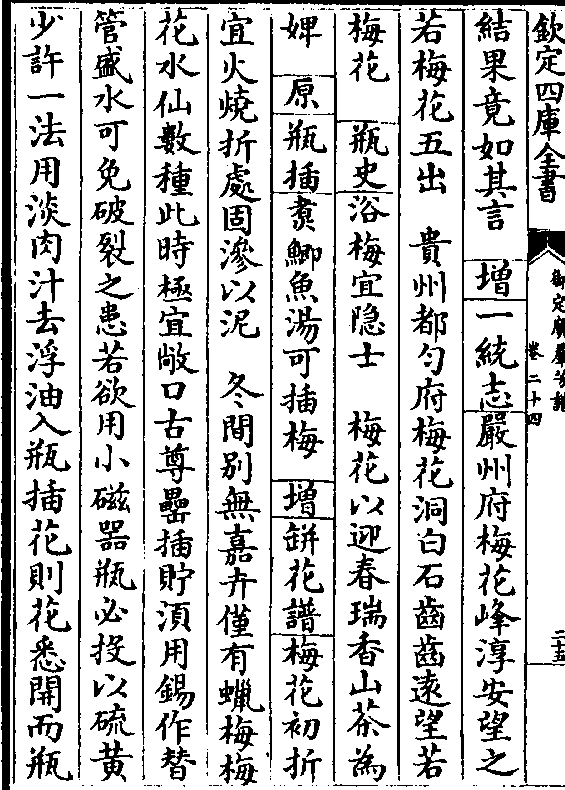 欽定四庫全書
御定廣羣芳譜
卷二十四
二十五
結果竟如其言 增一統志嚴州府梅花峰淳安望之
若梅花五出 貴州都勻府梅花洞白石齒齒遠望若
梅花 瓶史浴梅宜隐士 梅花以迎春瑞香山茶為
婢 原瓶插煑鯽魚湯可插梅 增缾花譜梅花初折
宜火燒折處固滲以泥 冬間别無嘉卉僅有蠟梅梅
花水仙數種此時極宜敞口古尊罍插貯湏用錫作替
管盛水可免破裂之患若欲用小磁器瓶必投以硫黄
少許一法用淡肉汁去浮油入瓶插花則花悉開而瓶